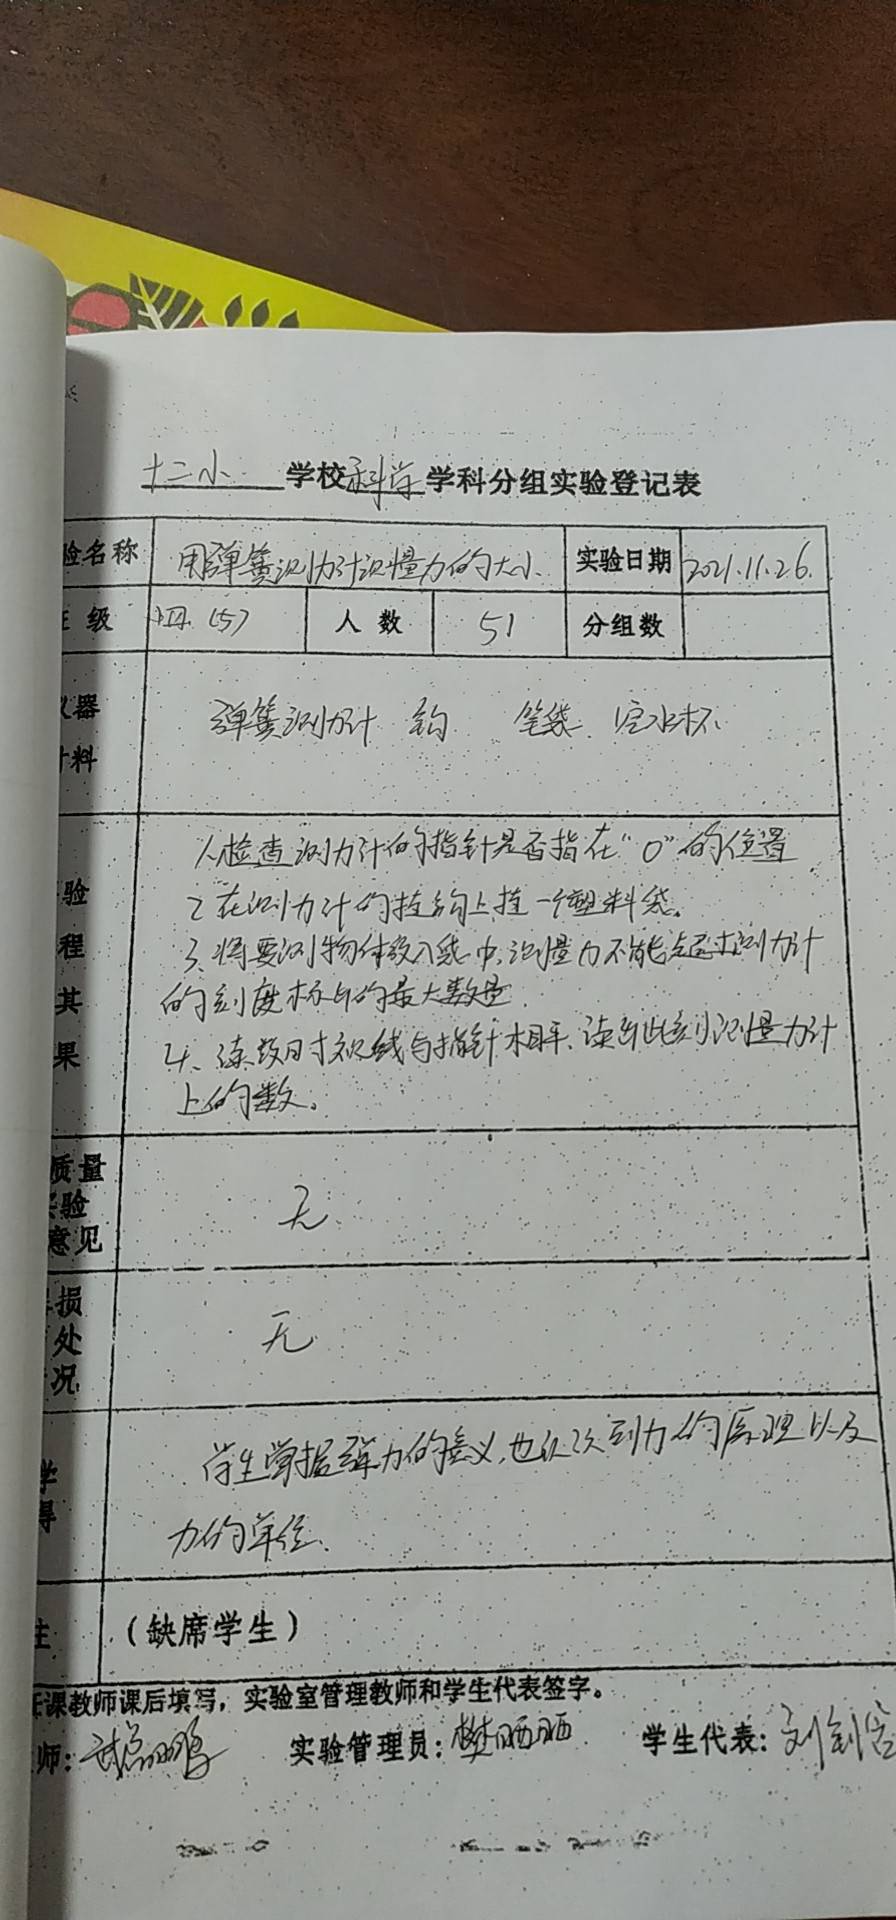 十二小 学校科学学科分组实验登记表
验名称 用弹簧测力计测量力的大小 实验日期 2021.11.26.
级 四(5) 人数 51 分组数
器
料
弹簧测力计 钩 笔袋 空水杯
验
程
其
果
1、检查测力计的指针是否指在“0”的位置
2 在测力计的挂钩上挂一个塑料袋。
3、将要测物体放入袋中,测量力不能超过测力计
的刻度标与的最大数量
4、读数时视线与指针相平、读出此刻测量力计
上的数。
质量
验
意见
无
损
处
况
无
学
得
学生掌握弹力的意义,也认识到力的原理以及
力的单位.
(缺席学生)
任课教师课后填写,实验室管理教师和学生代表签字。
师: 实验管理员:樊晒晒 学生代表:刘